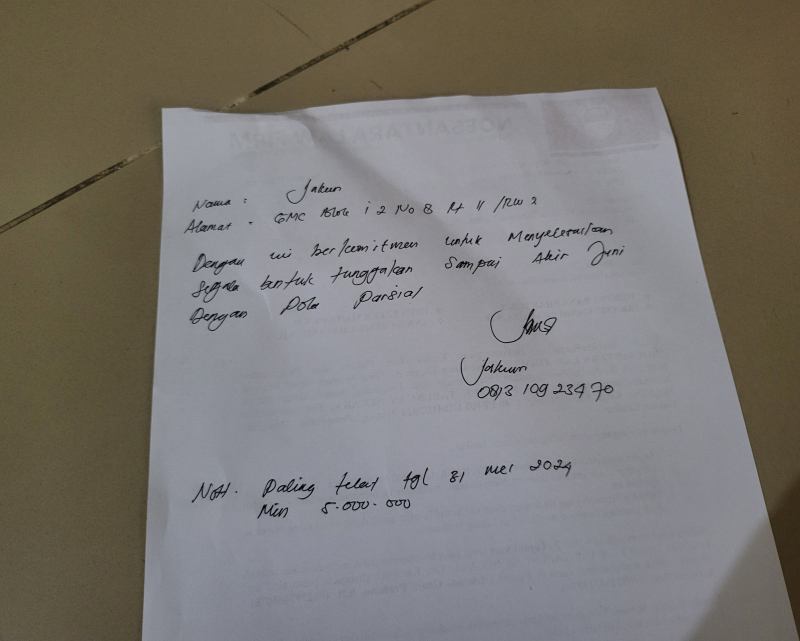 Nama : Jakun
Alamat : GMC Blok i 2 No 8 Rt 11 /RW 2
Dengan ini berkomitmen untuk Menyelesaikan
Segala bentuk tunggakan Sampai Akir Juni
Dengan Pola Parsial
Jakun
0813 109 234 70
Not. Paling telat tgl 31 mei 2024
Min 5.000.000